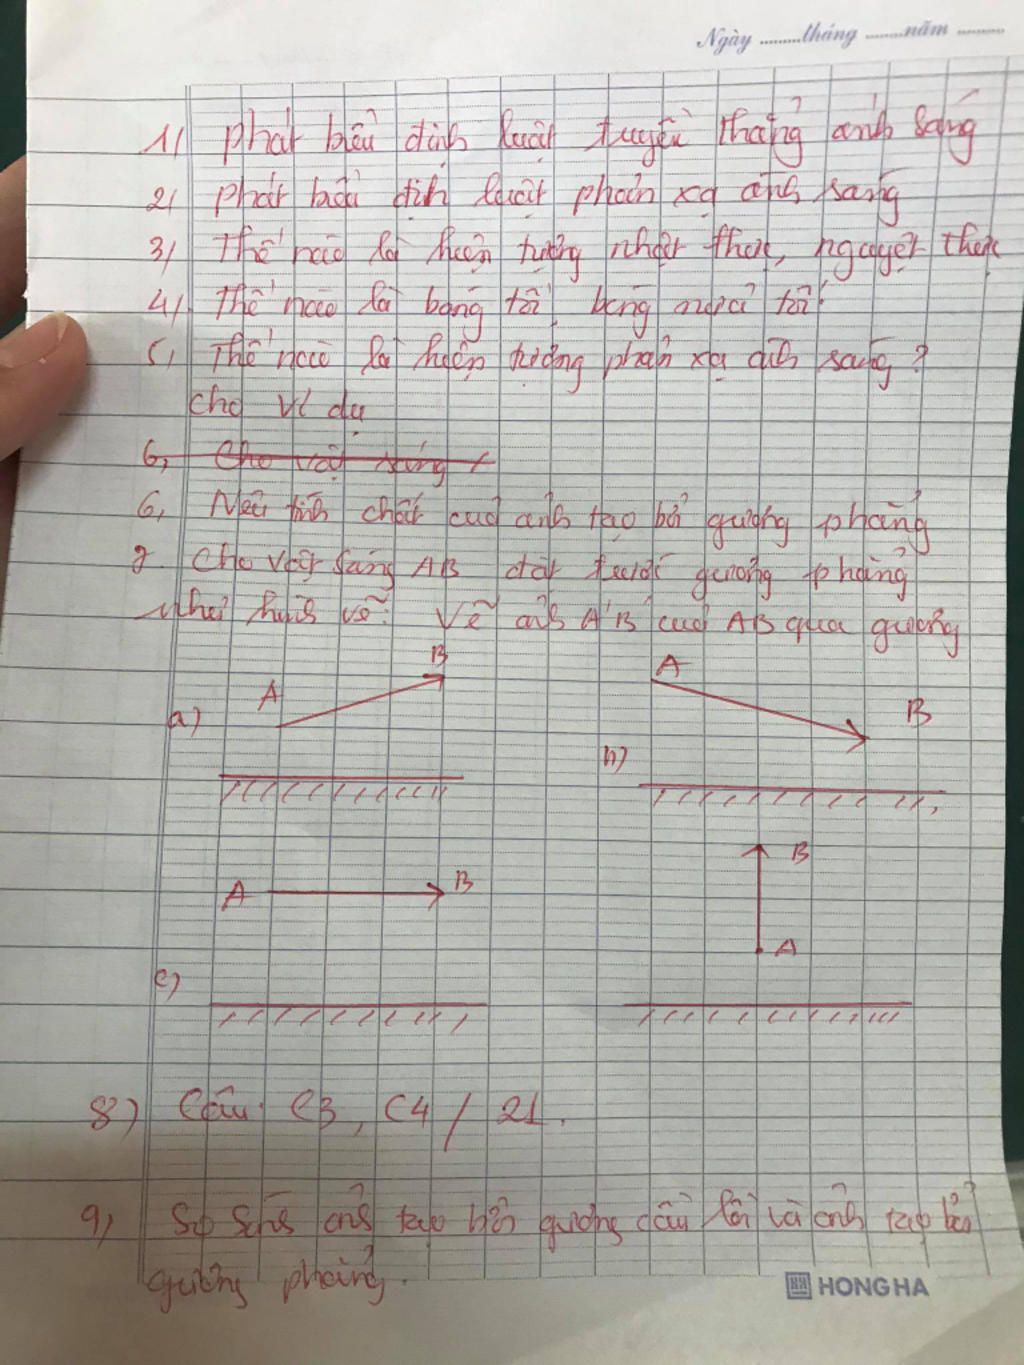 Ngày ........tháng ........năm ..........
1) Phát biểu định luật truyền thẳng ánh sáng
2) Phát biểu định luật phản xạ ánh sáng
3) Thế nào là hiện tượng nhật thực, nguyệt thực
4) Thế nào là bóng tối, bóng nửa tối
5, Thế nào là hiện tượng phản xạ ánh sáng?
cho ví dụ
6, Cho vật sáng
6, Nêu tính chất của ảnh tạo bởi gương phẳng
7. Cho vật sáng AB đặt trước gương phẳng
như hình vẽ. Vẽ ảnh A'B' của AB qua gương
a) A B
b) A B
c) A B
B
A
8) Câu C3, C4 / 21.
9) So sánh ảnh tạo bởi gương cầu lồi và ảnh tạo bởi
gương phẳng.
HONG HA